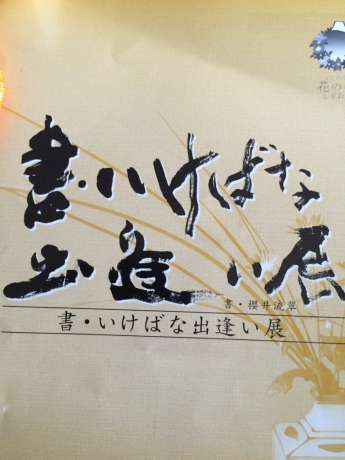 花の
書・いけばな
出逢い展
書・櫻井流翠
書・いけばな出逢い展